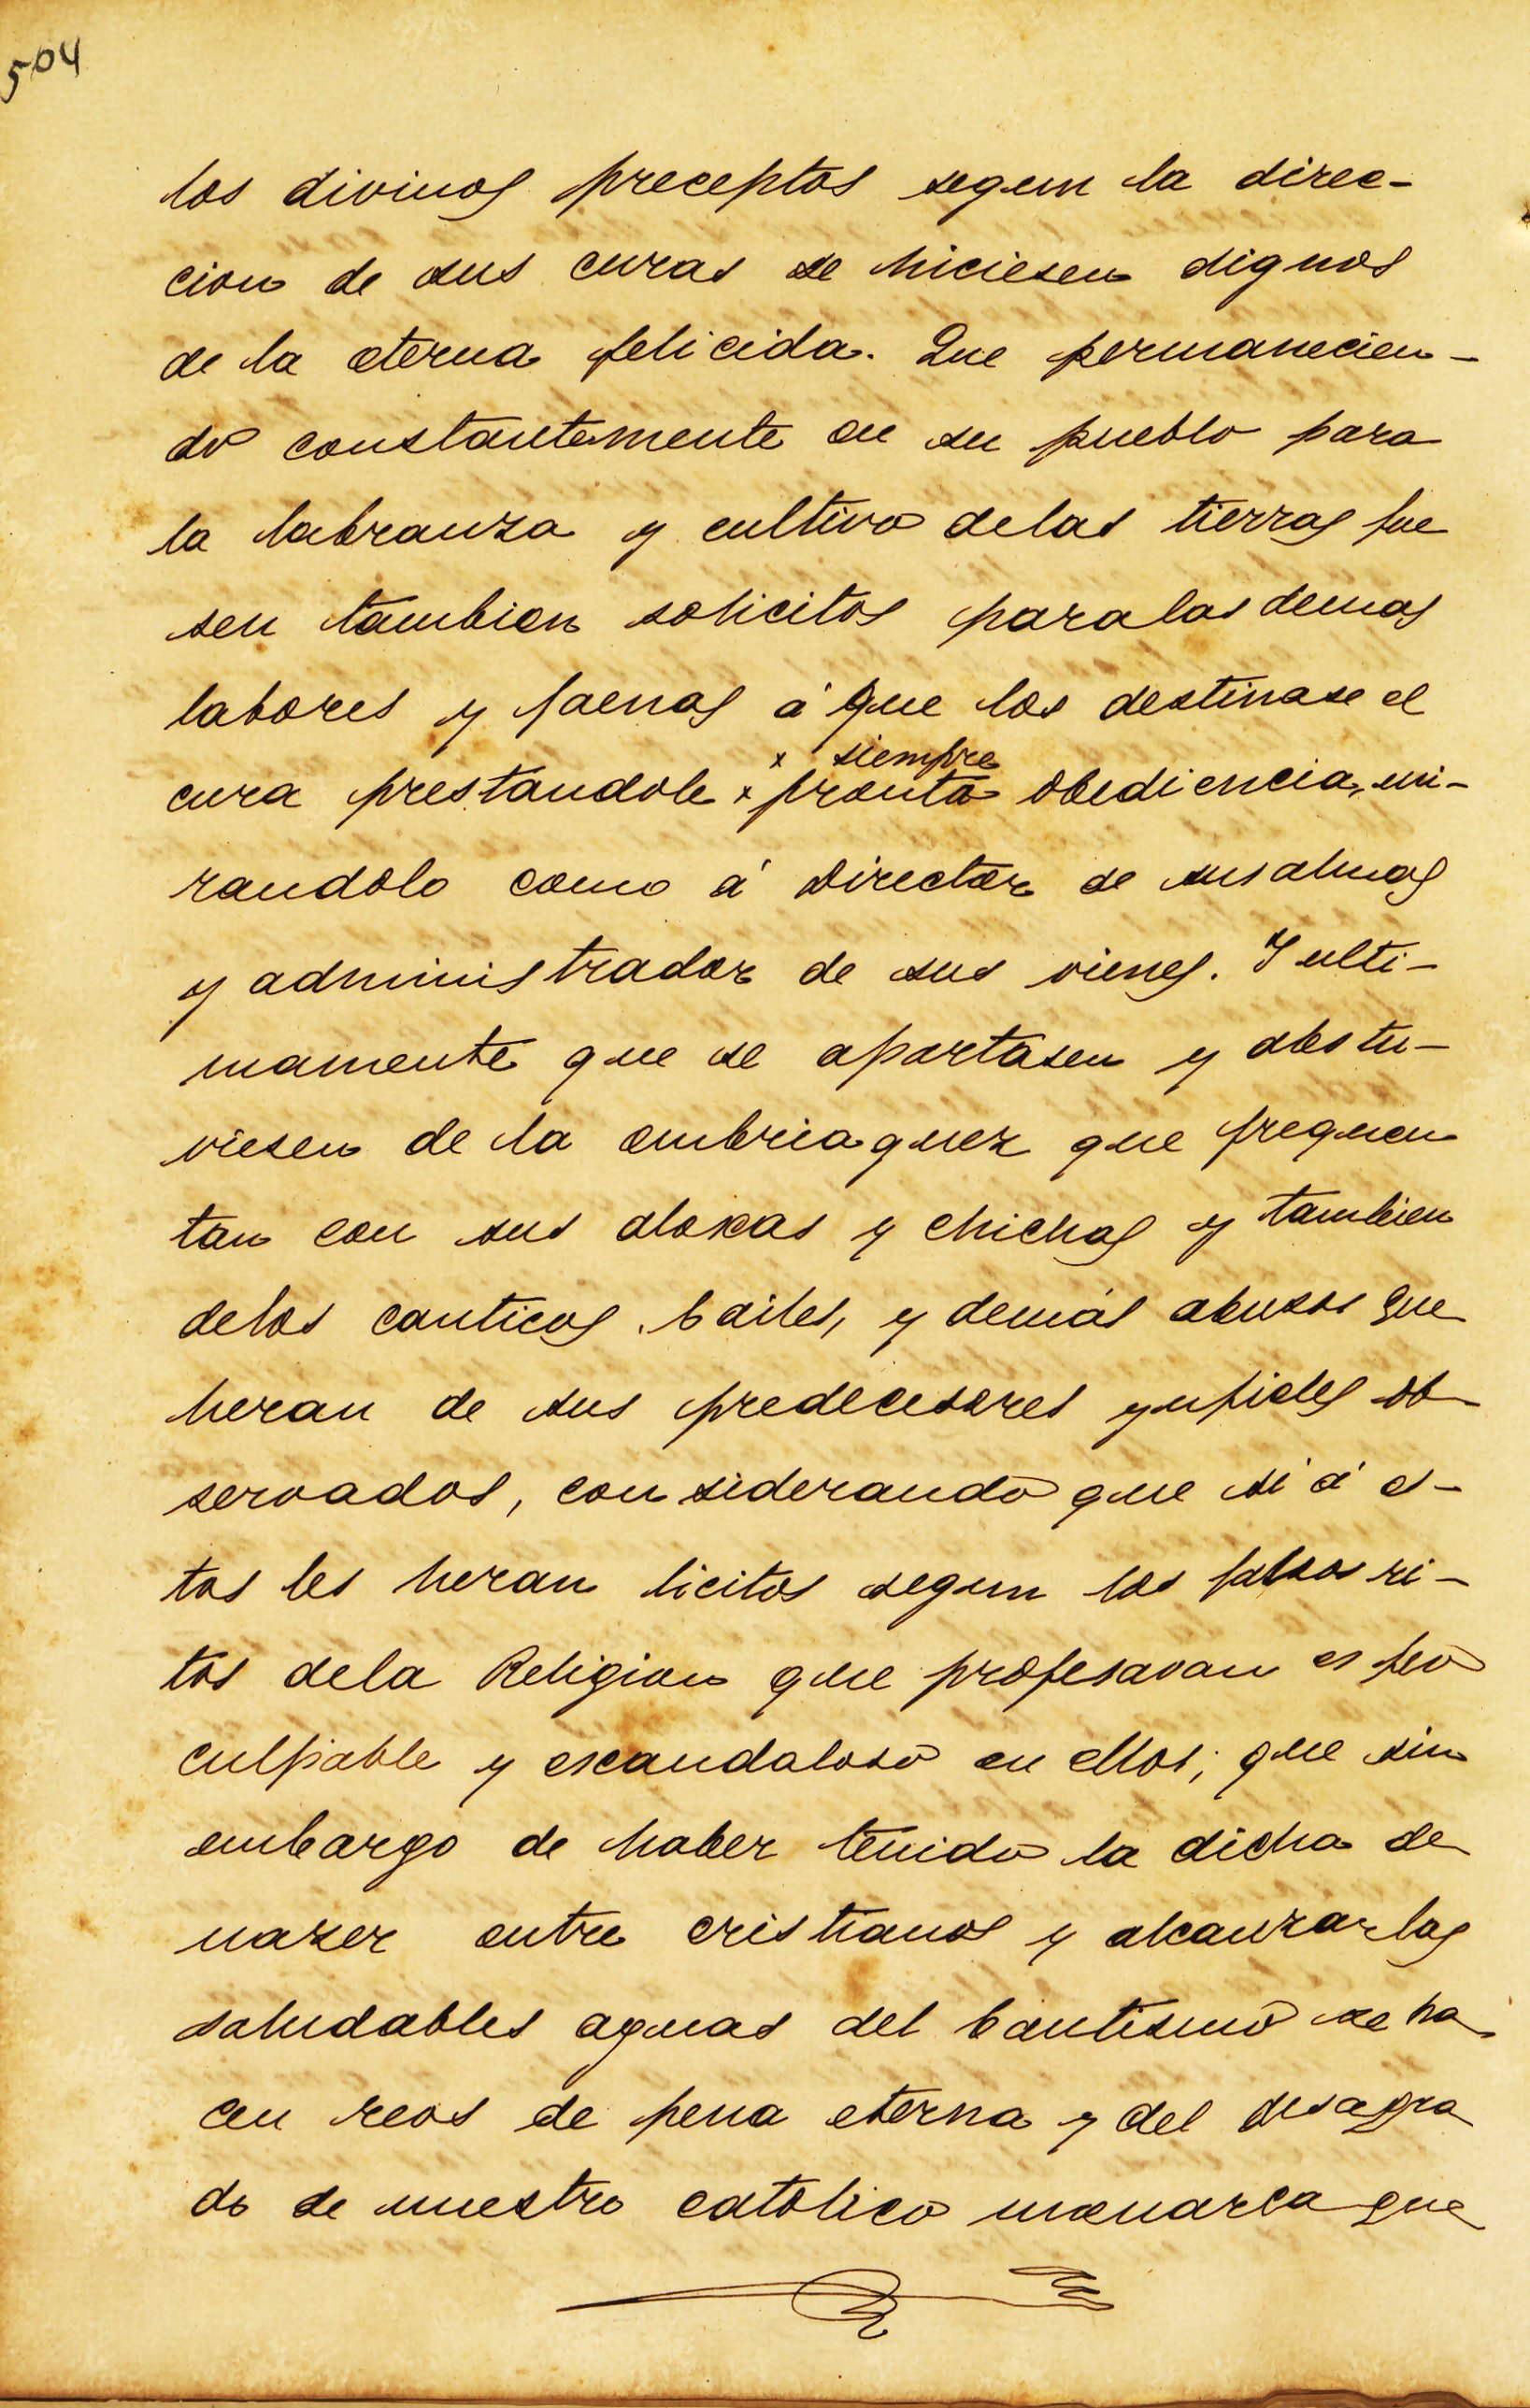 504
los divinos preceptos segun la direc-
cion de sus curas se hiciesen dignos
de la eterna felicida. Que permanecien-
do constantemente en su pueblo para
la labranza y cultivo delas tierras fue
sen tambien solicitos para las demas
labores y faenas á que los destinase el
x siempre
cura prestandole x pronta obediencia, mi-
randolo como á Director de sus almas
y administrador de sus vienes. Y ulti-
mamente que se apartasen y abstu-
viesen de la embriaguez que frequen
tan con sus aloxas y chichas y tambien
delos canticos, bailes, y demás abuzos que
heran de sus predecesores ynfieles ob
servados, considerando que si á es-
tos les heran licitos segun los falsos ri-
tos dela Religion que profesavan es feo
culpable y escandaloso en ellos; que sin
embargo de haber tenido la dicha de
nazer entre cristianos y alcanzar las
saludables aguas del bautismo se ha
cen reos de pena eterna y del desagra
do de nuestro catolico monarca que